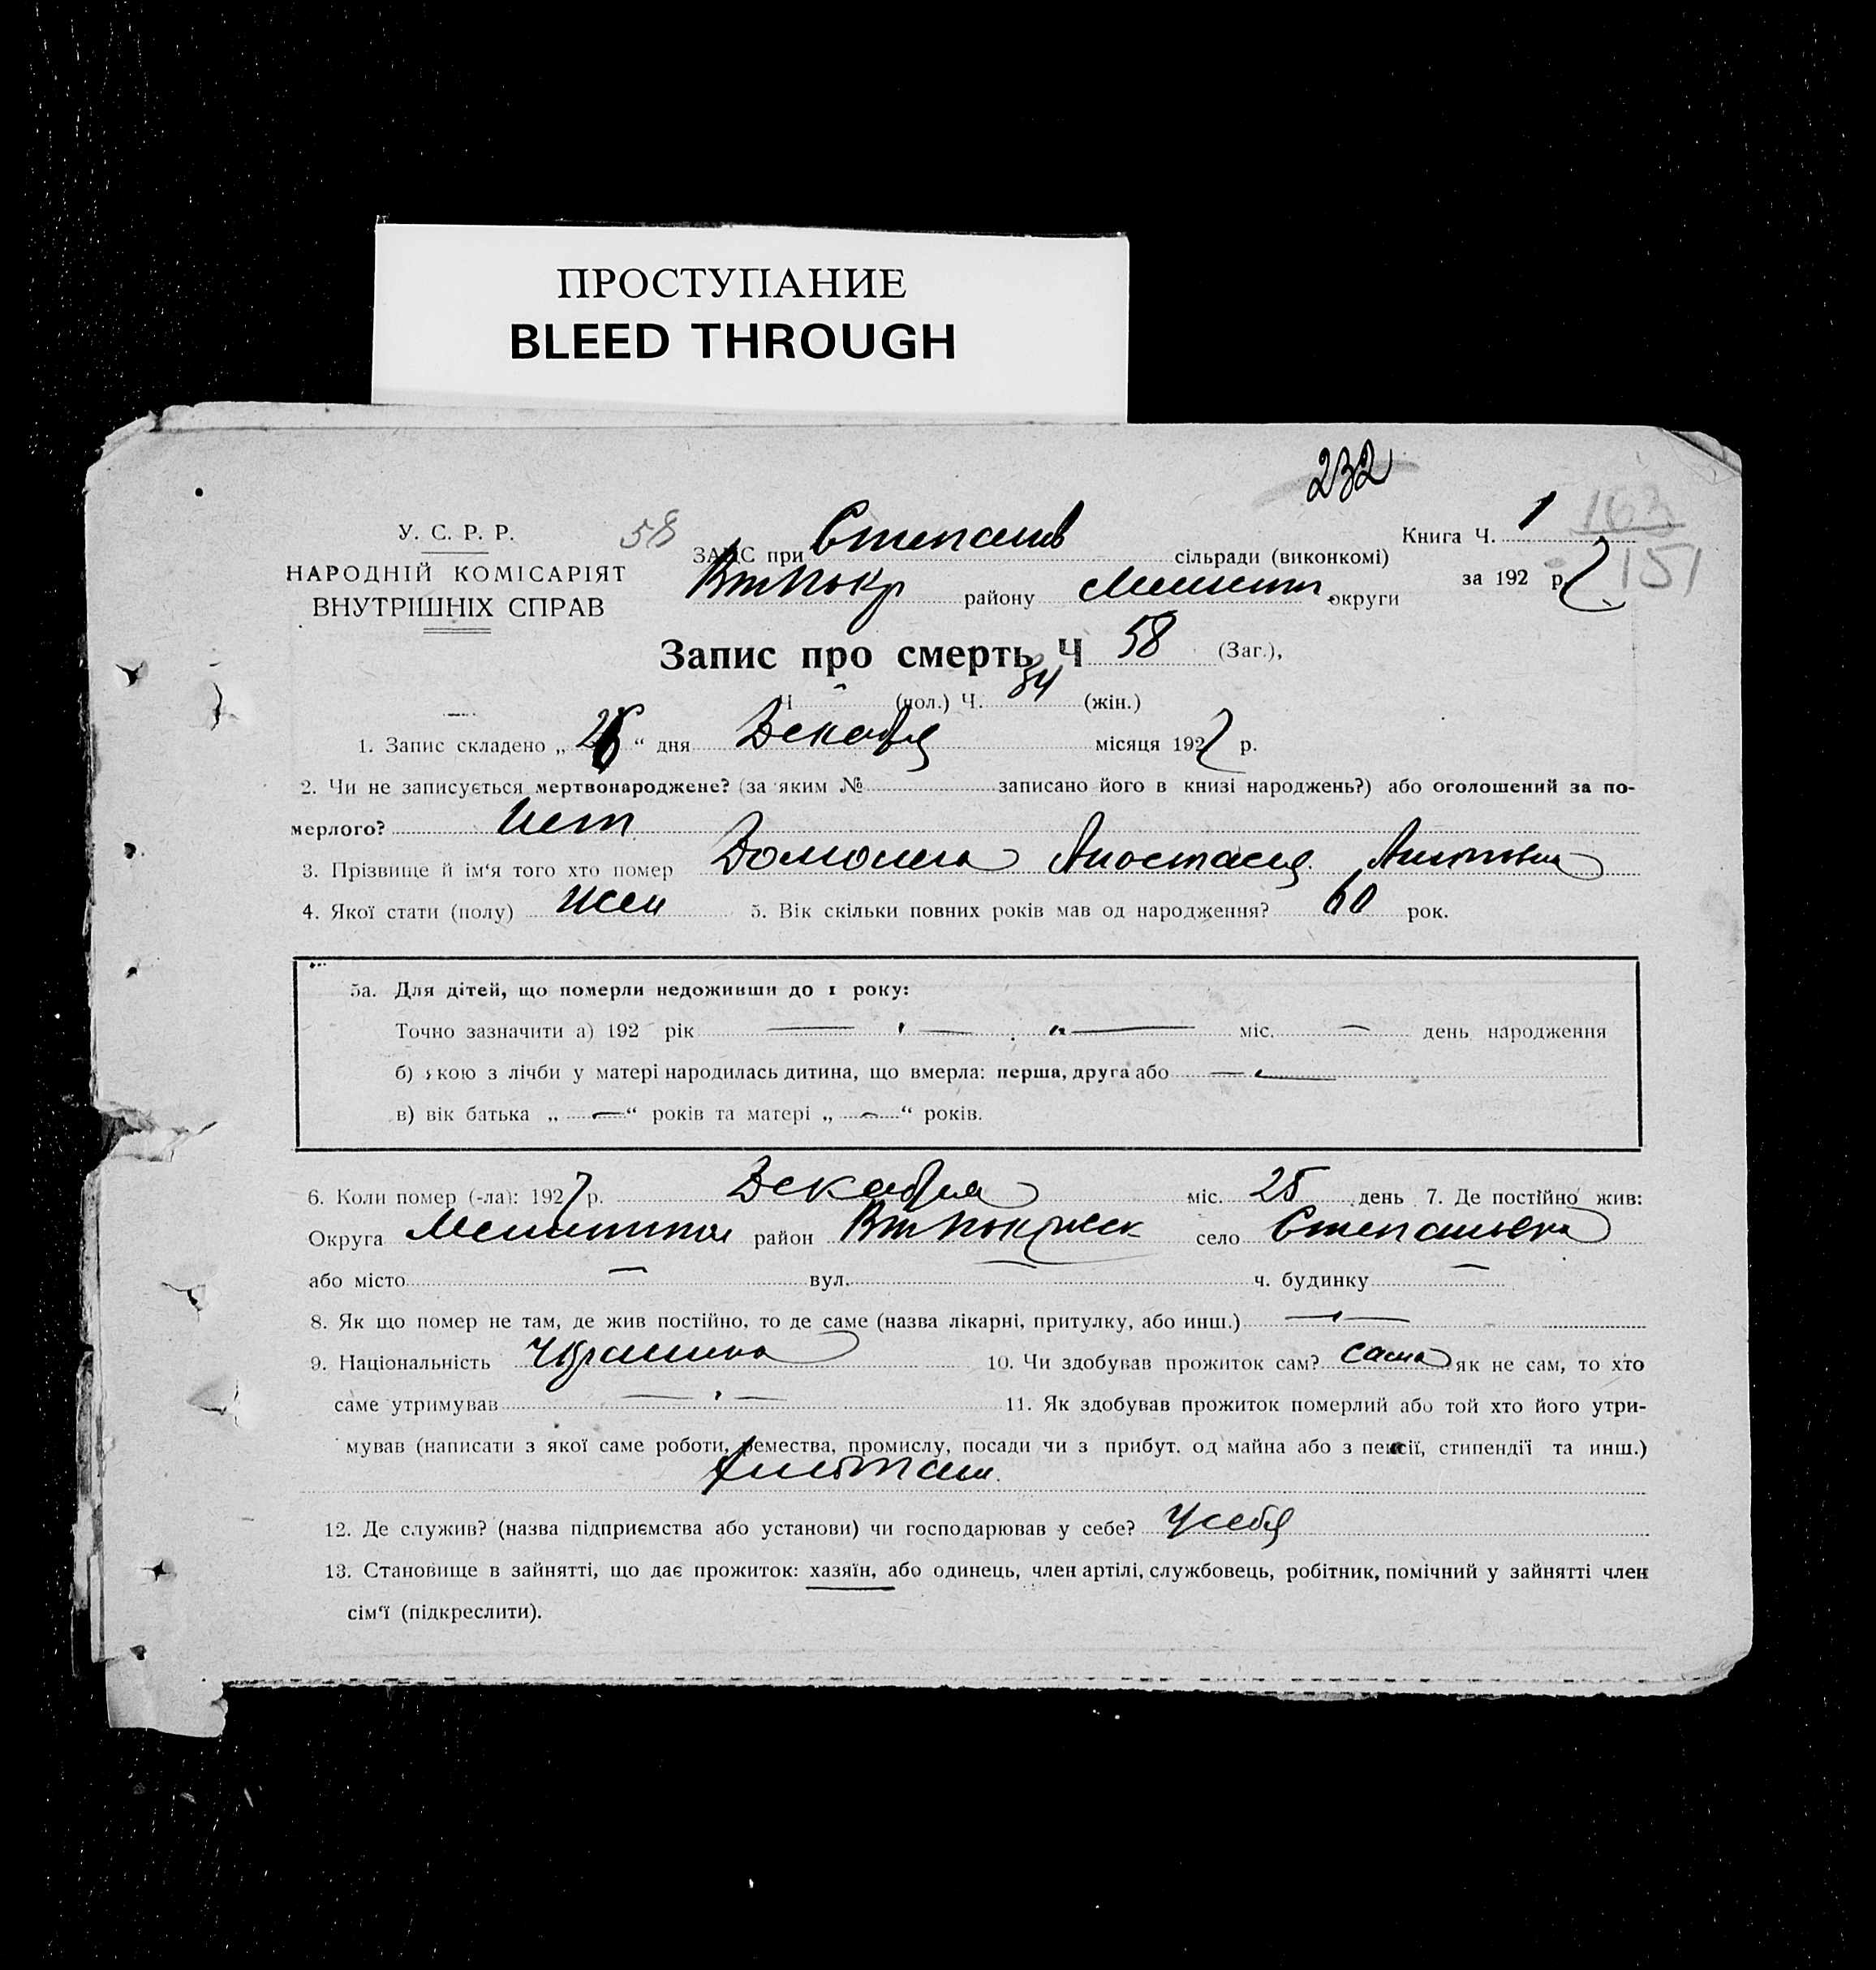 ПРОСТУПАНИЕ
BLEED THROUGH
232
У. С. Р. Р.
НАРОДНІЙ КОМІСАРІЯТ
ВНУТРІШНІХ СПРАВ
58
ЗАГС при Степанів сільради (виконкомі)
району округи
Книга Ч. 1
163
151
за 1927 р.
Запис про смерть Ч 58 (Заг.),
Ч - (чол.) Ч. 34 (жін.)
1. Запис складено „ 26 “ дня Декабря місяця 1927 р.
2. Чи не записується мертвонароджене? (за яким № записано його в книзі народжень?) або оголошений за по-
мерлого? Нет
3. Прізвище й ім'я того хто помер Анастасия
4. Якої стати (полу) жен 5. Вік скільки повних років мав од народження? 60 рок.
5а. Для дітей, що померли недоживши до 1 року:
Точно зазначити а) 192 рік — міс. — день народження
б) якою з лічби у матері народилась дитина, що вмерла: перша, друга або —
в) вік батька „ — “ років та матері „ — “ років.
6. Коли помер (-ла): 1927 р. Декабря міс. 25 день 7. Де постійно жив:
Округа район село Степановка
або місто — вул. — ч. будинку —
8. Як що помер не там, де жив постійно, то де саме (назва лікарні, притулку, або инш.) —
9. Національність Украинка 10. Чи здобував прожиток сам? сама як не сам, то хто
саме утримував — 11. Як здобував прожиток померлий або той хто його утри-
мував (написати з якої саме роботи, ремества, промислу, посади чи з прибут. од майна або з пенсії, стипендії та инш.)
12. Де служив? (назва підприємства або установи) чи господарював у себе? У себя
13. Становище в зайнятті, що дає прожиток: хазяїн, або одинець, член артілі, службовець, робітник, помічний у зайнятті член
сім'ї (підкреслити).